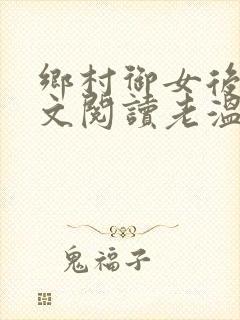 鄉村御女後
文閱讀老溫
鬼福子